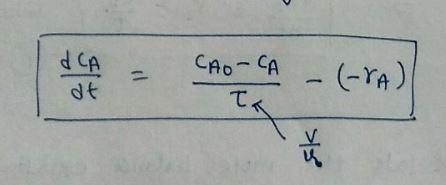 dC_A/dt = (C_A0 - C_A)/τ - (-r_A)
V/v₀